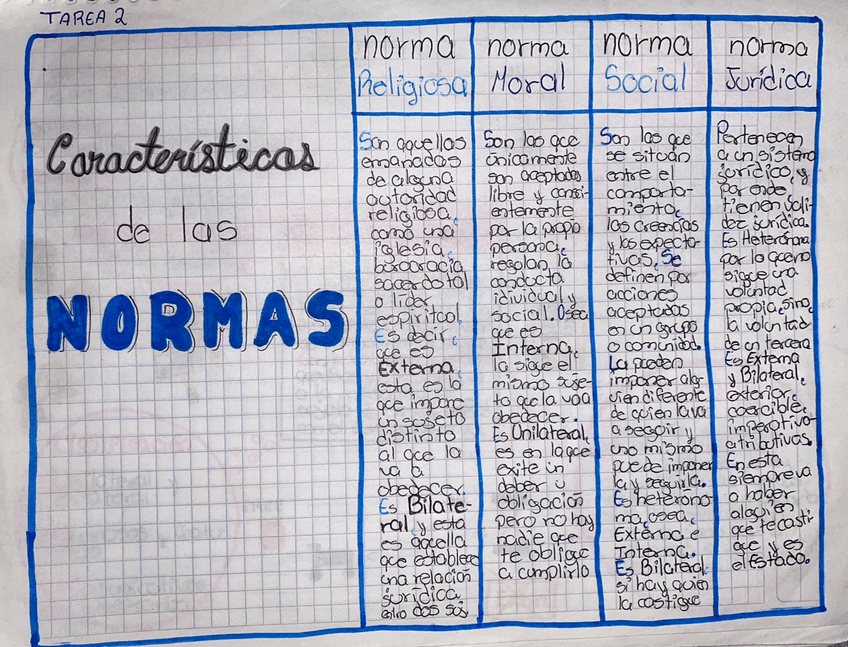 TAREA 2
Características
de las
NORMAS
norma
Religiosa
Son aquellas
emanadas
de alguna
autoridad
religiosa,
como una
iglesia,
burocracia
sacerdotal
o líder
espiritual.
Es decir,
que es
Externa,
esta es la
que impone
un sujeto
distinto
al que la
va a
obedecer.
Es Bilate-
ral, y esta
es aquella
que establece
una relación
jurídica
entre dos suj
norma
Moral
Son las que
únicamente
son aceptadas
libre y consi-
entemente
por la propia
persona,
regulan la
conducta
idividual y
social. Osea
que es
Interna,
la sigue el
mismo suje-
to que la va a
obedecer.
Es Unilateral,
es en la que
exite un
deber u
obligación
pero no hay
nadie que
te obligue
a cumplirlo
norma
Social
Son las que
se sitúan
entre el
comporta-
miento,
las creencias
y las expecta-
tivas. Se
definen por
acciones
aceptadas
en un grupo
o comunidad.
La pueden
imponer alg-
uien diferente
de quien la va
a seguir y
uno mismo
puede imponer
la y seguirla.
Es heterono-
ma, osea,
Externa e
Interna.
Es Bilateral
si hay quien
la castigue
norma
Jurídica
Pertenecen
a un sistema
jurídico, y
por ende
tienen vali-
dez jurídica.
Es Heterónoma
por lo que no
sigue una
voluntad
propia, sino,
la voluntad
de un tercero
Es Externa
y Bilateral,
exterior,
coercible,
imperativo-
atributivas.
En esta
siempre va
a haber
alguien
que te casti-
gue y es
el Estado.